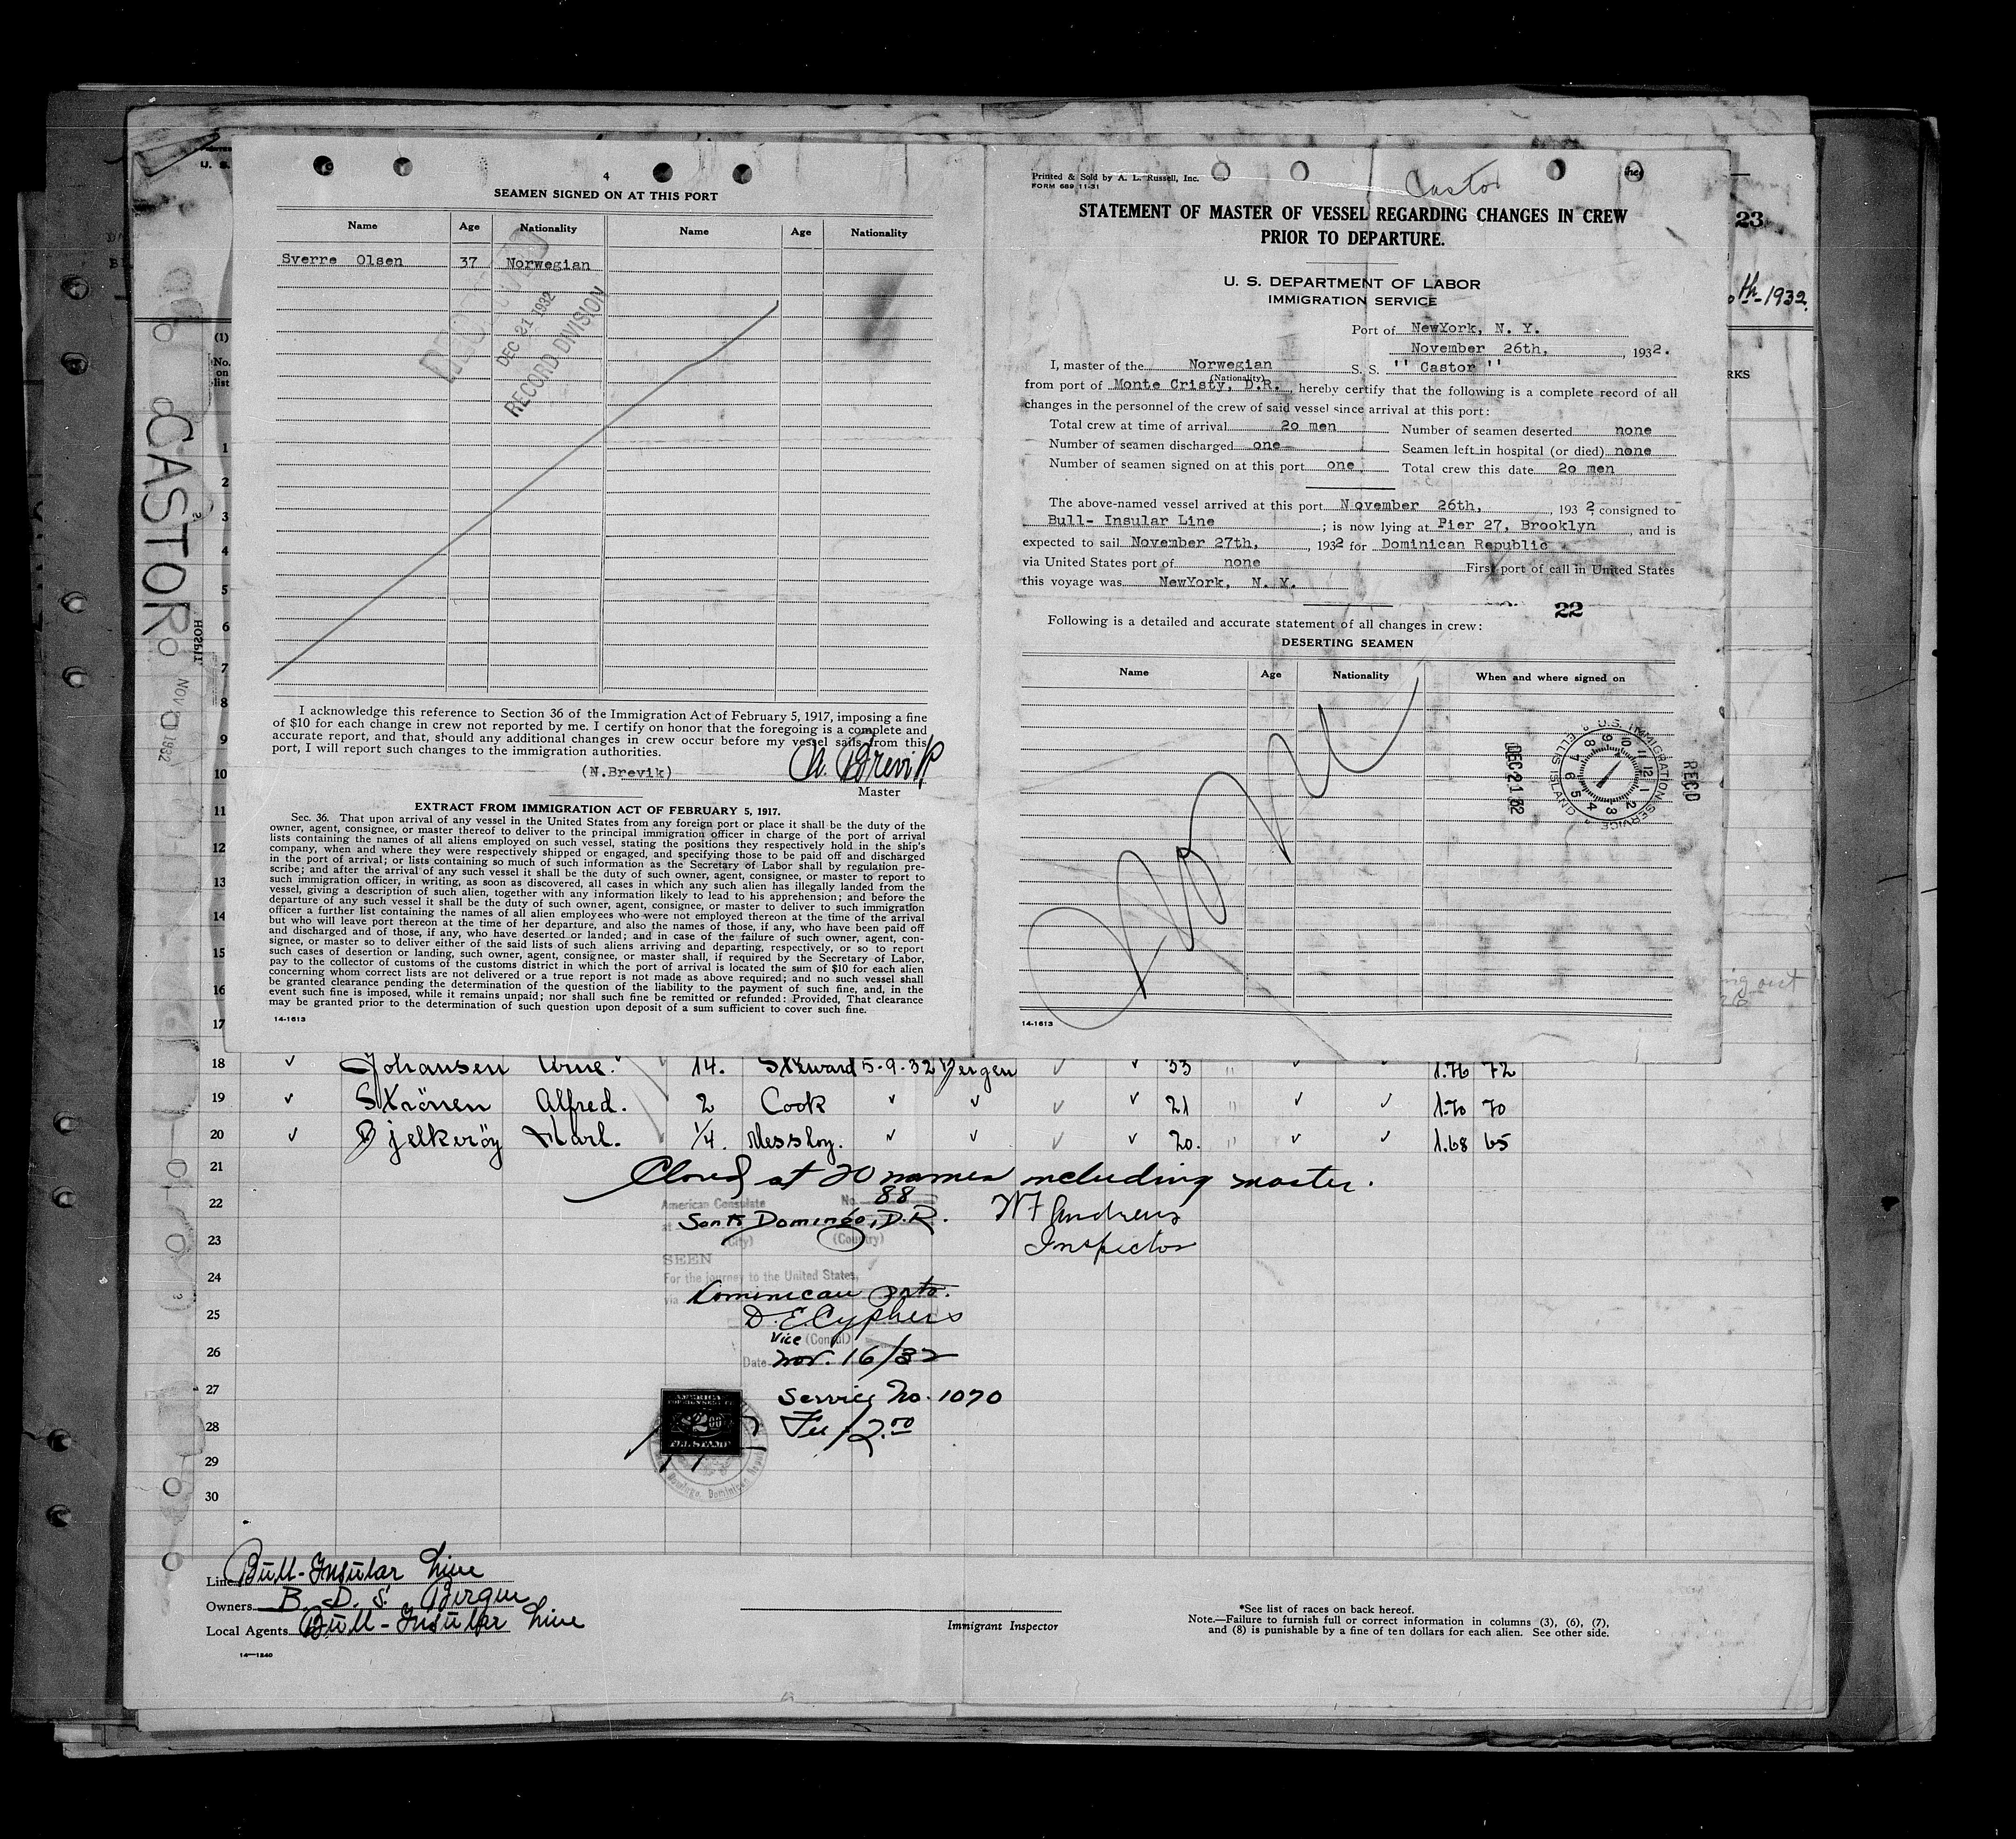 4
SEAMEN SIGNED ON AT THIS PORT
Name Age Nationality Name Age Nationality
Sverre Olsen 37 Norwegian
DEC 21 1932
RECORD DIVISION
I acknowledge this reference to Section 36 of the Immigration Act of February 5, 1917, imposing a fine
of $10 for each change in crew not reported by me. I certify on honor that the foregoing is a complete and
accurate report, and that, should any additional changes in crew occur before my vessel sails from this
port, I will report such changes to the immigration authorities.
(N.Brevik) N. Brevik
Master
EXTRACT FROM IMMIGRATION ACT OF FEBRUARY 5, 1917.
Sec. 36. That upon arrival of any vessel in the United States from any foreign port or place it shall be the duty of the
owner, agent, consignee, or master thereof to deliver to the principal immigration officer in charge of the port of arrival
lists containing the names of all aliens employed on such vessel, stating the positions they respectively hold in the ship's
company, when and where they were respectively shipped or engaged, and specifying those to be paid off and discharged
in the port of arrival; or lists containing so much of such information as the Secretary of Labor shall by regulation pre-
scribe; and after the arrival of any such vessel it shall be the duty of such owner, agent, consignee, or master to report to
such immigration officer, in writing, as soon as discovered, all cases in which any such alien has illegally landed from the
vessel, giving a description of such alien, together with any information likely to lead to his apprehension; and before the
departure of any such vessel it shall be the duty of such owner, agent, consignee, or master to deliver to such immigration
officer a further list containing the names of all alien employees who were not employed thereon at the time of the arrival
but who will leave port thereon at the time of her departure, and also the names of those, if any, who have been paid off
and discharged and of those, if any, who have deserted or landed; and in case of the failure of such owner, agent, con-
signee, or master so to deliver either of the said lists of such aliens arriving and departing, respectively, or so to report
such cases of desertion or landing, such owner, agent, consignee, or master shall, if required by the Secretary of Labor,
pay to the collector of customs of the customs district in which the port of arrival is located the sum of $10 for each alien
concerning whom correct lists are not delivered or a true report is not made as above required; and no such vessel shall
be granted clearance pending the determination of the question of the liability to the payment of such fine, and, in the
event such fine is imposed, while it remains unpaid; nor shall such fine be remitted or refunded: Provided, That clearance
may be granted prior to the determination of such question upon deposit of a sum sufficient to cover such fine.
14-1613
Printed & Sold by A. L. Russell, Inc.
FORM 689 11-31
Castor
STATEMENT OF MASTER OF VESSEL REGARDING CHANGES IN CREW
PRIOR TO DEPARTURE.
U. S. DEPARTMENT OF LABOR
IMMIGRATION SERVICE
Port of NewYork, N. Y.
November 26th, , 1932.
I, master of the Norwegian S. S. '' Castor ''
(Nationality)
from port of Monte Cristy, D.R. , hereby certify that the following is a complete record of all
changes in the personnel of the crew of said vessel since arrival at this port:
Total crew at time of arrival 2o men Number of seamen deserted none
Number of seamen discharged one Seamen left in hospital (or died) none
Number of seamen signed on at this port one Total crew this date 2o men
The above-named vessel arrived at this port November 26th, , 193 2, consigned to
Bull- Insular Line ; is now lying at Pier 27, Brooklyn , and is
expected to sail November 27th, , 1932 for Dominican Republic
via United States port of none First port of call in United States
this voyage was NewYork, N. Y.
22
Following is a detailed and accurate statement of all changes in crew:
DESERTING SEAMEN
Name Age Nationality When and where signed on
None
U.S. IMMIGRATION SERVICE ELLIS ISLAND
REC'D
DEC 21 32
14-1613
23
th-1932.
RKS
CASTOR
NOV 1932
(1)
No.
on
list
1
2
3
4
5
6
7
8
9
10
11
12
13
14
15
16
17
18 Johansen Arne. 14. Steward 5-9-32 Bergen 33 " 1.76 72
19 Strönen Alfred. 2 Cook 21 " 1.70 70
20 Bjelkeröy Harl. 1/4. Messboy. 20. " 1.68 65
21 Closed at 20 names including master.
American Consulate No. 88
22 at Santo Domingo, D.R. W F Andrews
23 (City) (Country) Inspector
SEEN
24 For the journey to the United States,
via Dominican ports.
25 D. E. Cyphers
Vice (Consul)
26 Date Nov. 16/32
27 Service No. 1070
28 Fee $2.00
29
30
Line Bull-Insular Line
Owners B. D. S. Bergen
Local Agents Bull-Insular Line
14-1240
Immigrant Inspector
*See list of races on back hereof.
Note.—Failure to furnish full or correct information in columns (3), (6), (7),
and (8) is punishable by a fine of ten dollars for each alien. See other side.